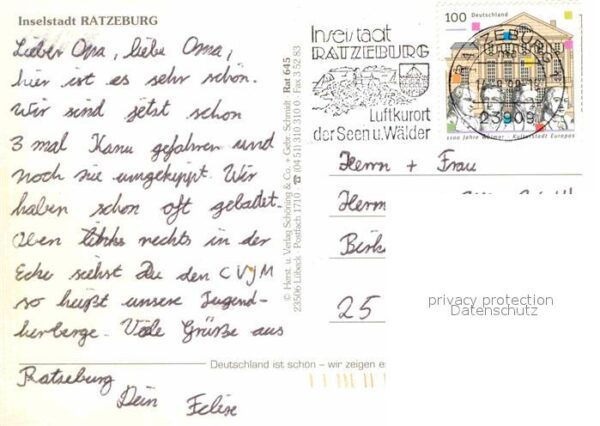 Inselstadt RATZEBURG
Lieber Opa, liebe Oma,
hier ist es sehr schön.
Wir sind jetzt schon
3 mal Kanu gefahren und
noch nie umgekippt. Wir
haben schon oft gebadet.
Oben rechts in der
Ecke siehst Du den CVJM
so heißt unsere Jugend-
herberge. Viele Grüße aus
Ratzeburg
Dein Felix
© Herst. u. Verlag Schöning & Co. + Gebr. Schmidt Rat 645
23506 Lübeck · Postfach 1710 · ☎ (0451) 310 310 0 · Fax 3 52 83
Deutschland ist schön – wir zeigen e
Inselstadt
RATZEBURG
Luftkurort
der Seen u. Wälder
100 Deutschland
1100 Jahre Weimar - Kulturstadt Europas
RATZEBURG 1
23909
Herrn + Frau
Herm
Birk
25
privacy protection
Datenschutz